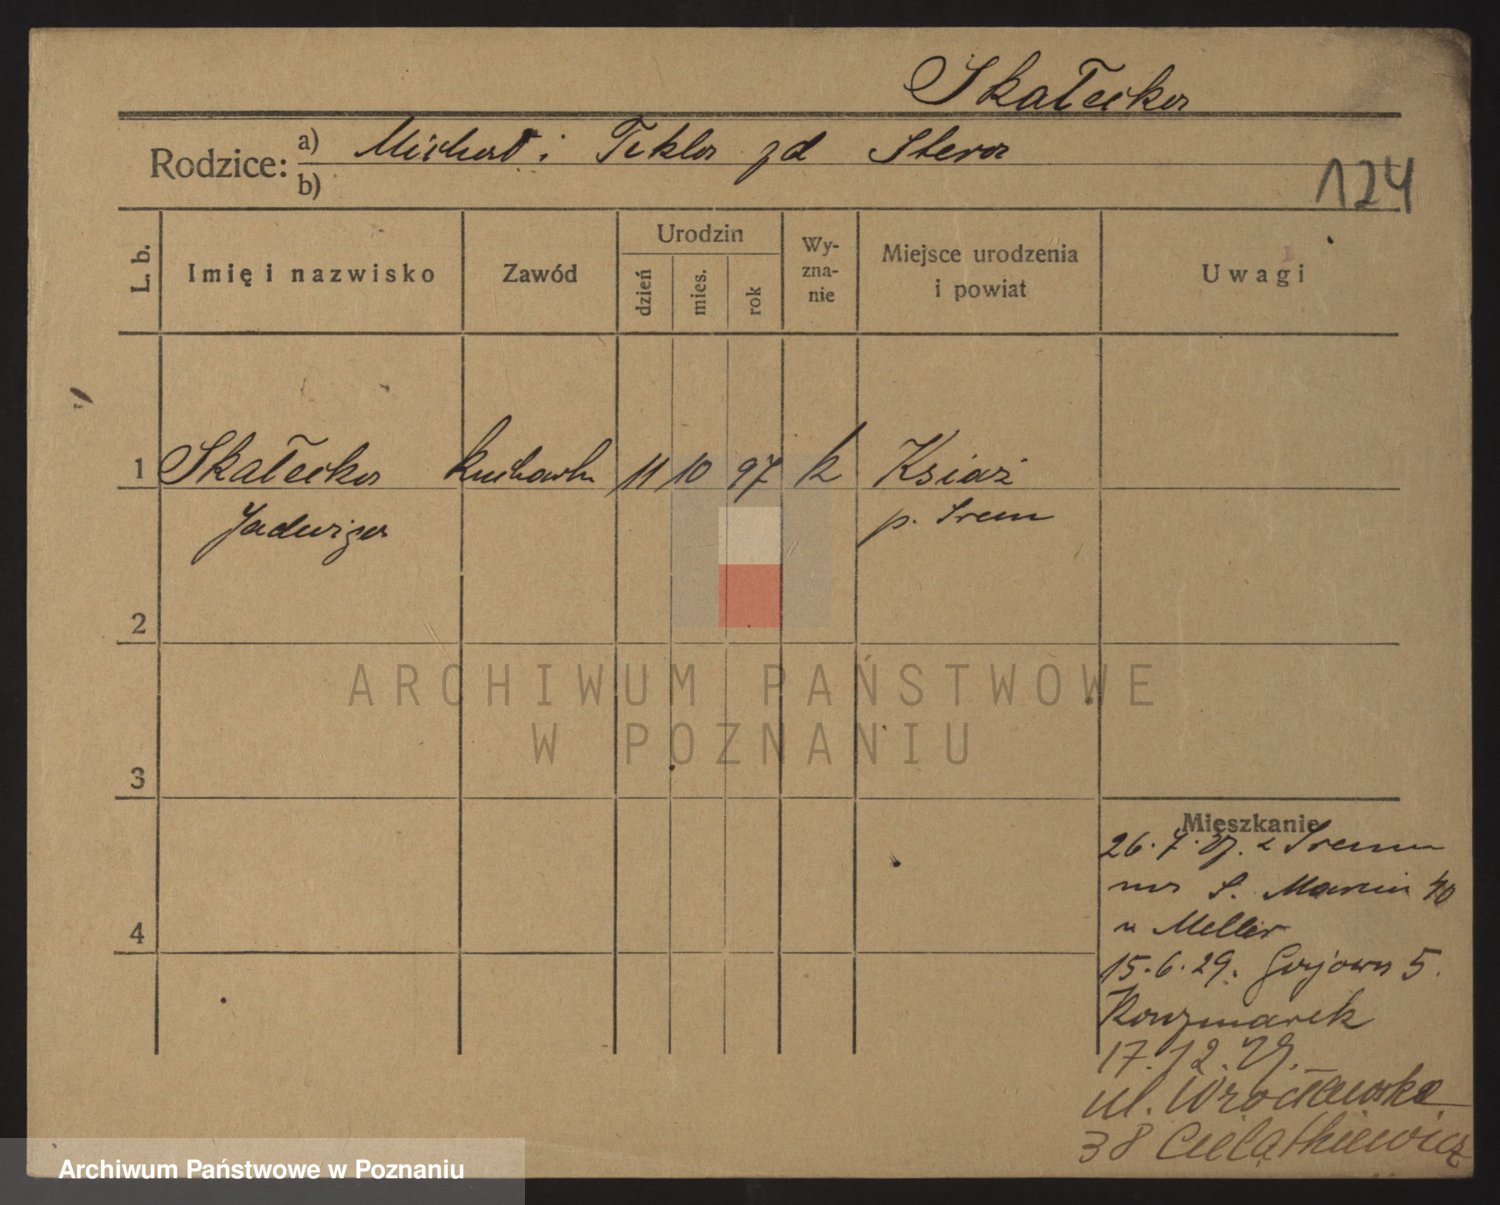 Skałecka
Rodzice: a) Michał i Tekla zd Stera
b)
124
L. b.
Imię i nazwisko
Zawód
Urodzin
dzień
mies.
rok
Wy-
zna-
nie
Miejsce urodzenia
i powiat
Uwagi
1 Skałecka kucharka 11 10 97 k Książ
Jadwiga p. Śrem
2
3
4
ARCHIWUM PAŃSTWOWE
W POZNANIU
Mieszkanie
26.7.27. z Śremu
na S. Marcin 40
u Meller
15.6.29. 5.
Kaczmarek
17.12.29.
ul. Wrocławska
38 Cielątkiewicz
Archiwum Państwowe w Poznaniu